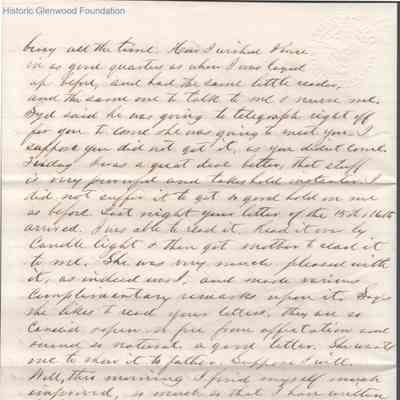 Historic Glenwood Foundation
busy all the time. How I wished I were
in as good quarters as when I was laid
up before, and had the same little reader,
and the same one to talk to me & nurse me.
Syd said he was going to telegraph right off
for you to come she was going to meet you I
suppose you did not get it, as you didnt come.
Friday I was a great deal better, that stuff
is very powerful and takes hold instanter. I
did not suffer it to get so good hold on me
as before. Last night your letter of the 15th & 16th
arrived. I was able to read it. Read it over by
Candle light & then got mother to read it
to me. She was very much pleased with
it, as indeed was I, and made various
Complimentary remarks upon it. Says
she likes to read your letters, they are so
Candid & open & free from affectation and
sound so natural. a good letter. She wants
me to show it to father. Suppose I will.
Well, this morning I find myself much
improved, so much so that I have written